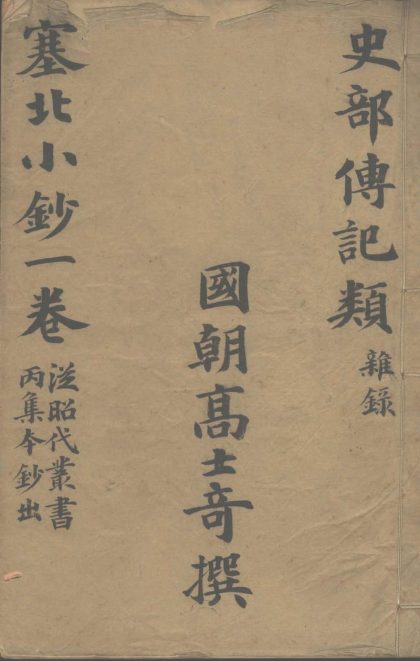 史部傳記類 雜錄
國朝高士奇撰
塞北小鈔一卷
從昭代叢書
丙集本鈔出